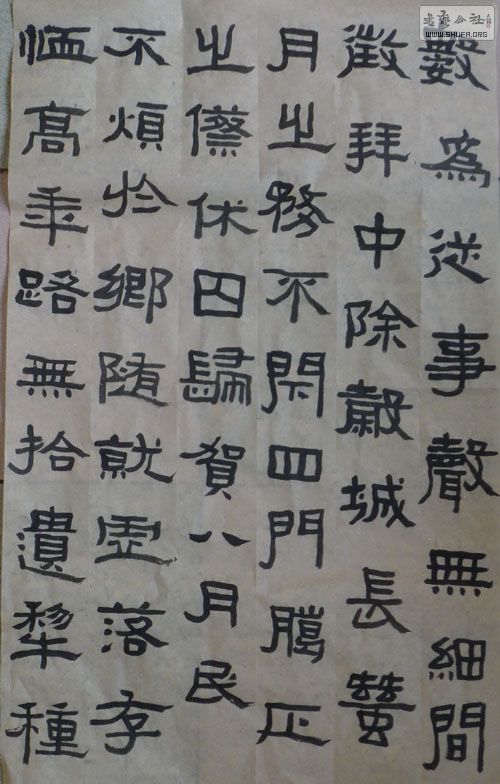 數為從事聲無細間
徵拜中除穀城長蠶
月之務不閇四門臈正
之僚休囚歸賀八月民
不煩於鄉随就虛落存
恤高年路無拾遺犂種
书艺公社
WWW.SHUFA.ORG